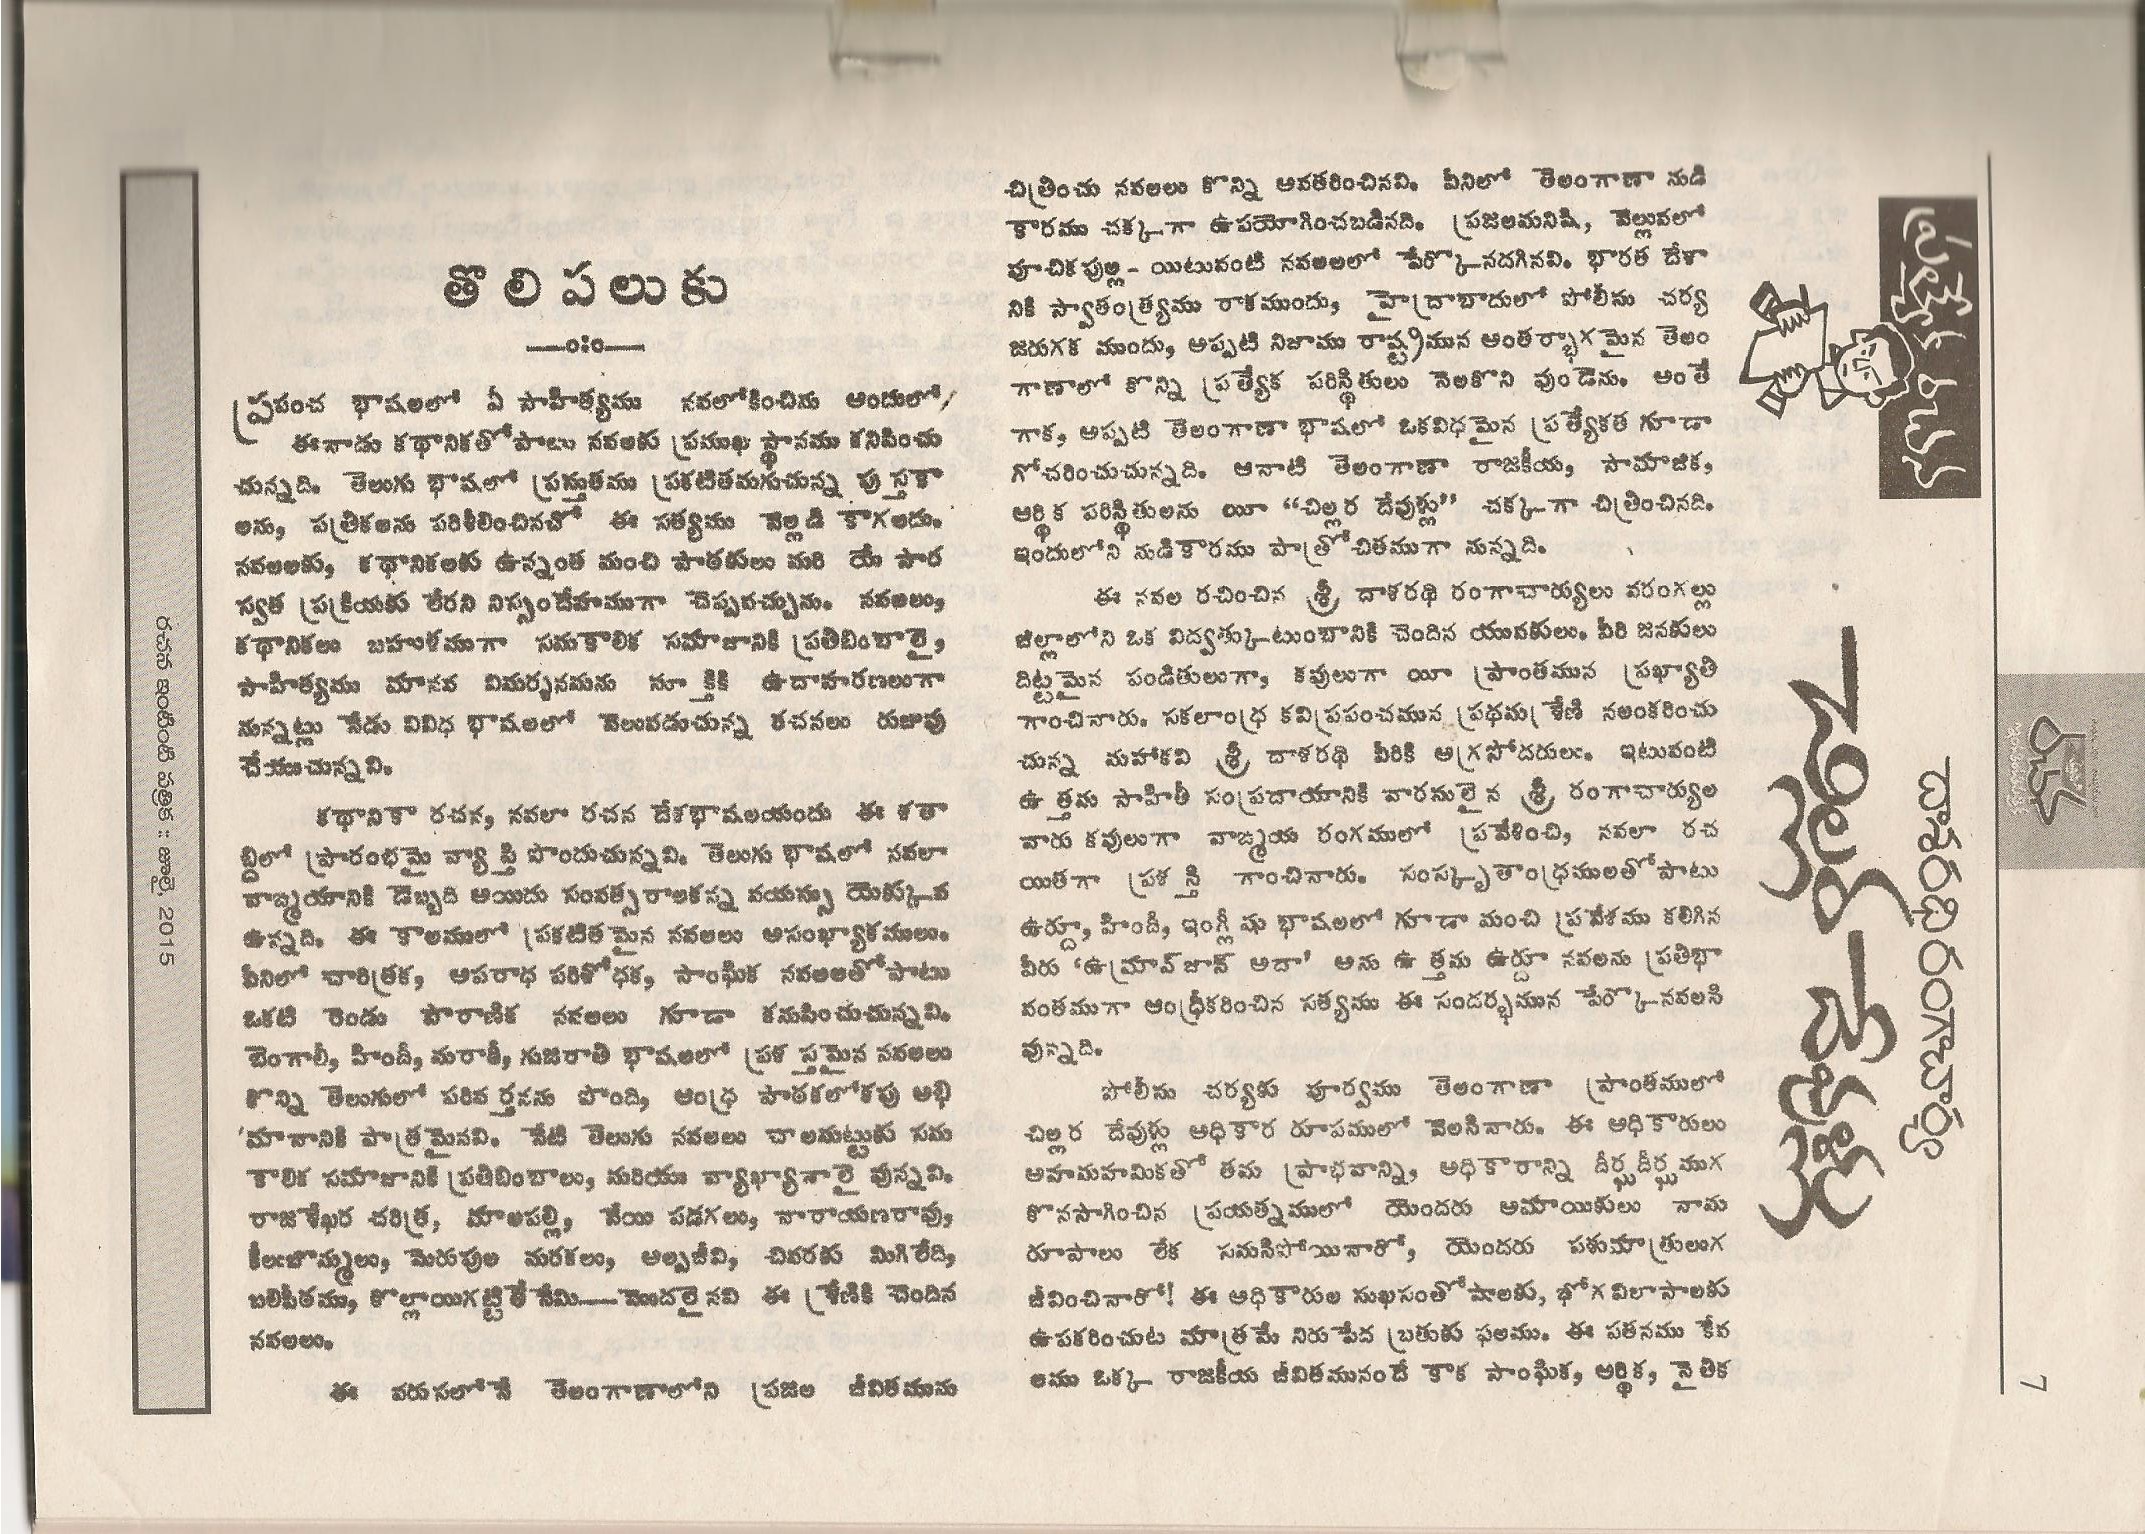 తొలిపలుకు
—ం:ం—
ప్రపంచ భాషలలో ఏ సాహిత్యము నవలోకించిను అందులో
ఈనాడు కథానికతోపాటు నవలకు ప్రముఖ స్థానము కనిపించు
చున్నది. తెలుగు భాషలో ప్రస్తుతము ప్రకటితమగుచున్న పుస్తకా
లను, పత్రికలను పరిశీలించినచో ఈ సత్యము వెల్లడి కాగలదు.
నవలలకు, కథానికలకు ఉన్నంత మంచి పాఠకులు మరి యే సార
స్వత ప్రక్రియకు లేరని నిస్సందేహముగా చెప్పవచ్చును. నవలలు,
కథానికలు బహుళముగా సమకాలిక సమాజానికి ప్రతిబింబాలై,
సాహిత్యము మానవ విమర్శనమను సూక్తికి ఉదాహరణలుగా
నున్నట్లు నేడు వివిధ భాషలలో వెలువడుచున్న రచనలు రుజువు
చేయుచున్నవి.
కథానికా రచన, నవలా రచన దేశభాషలయందు ఈ శతా
బ్దిలో ప్రారంభమై వ్యాప్తి పొందుచున్నవి. తెలుగు భాషలో నవలా
వాఙ్మయానికి డెబ్బది అయిదు సంవత్సరాలకన్న వయస్సు యెక్కువ
ఉన్నది. ఈ కాలములో ప్రకటితమైన నవలలు అసంఖ్యాకములు.
వీనిలో చారిత్రక, అపరాధ పరిశోధక, సాంఘిక నవలలతోపాటు
ఒకటి రెండు పౌరాణిక నవలలు గూడా కనుపించుచున్నవి.
బెంగాలీ, హిందీ, మరాఠీ, గుజరాతి భాషలలో ప్రశస్తమైన నవలలు
కొన్ని తెలుగులో పరివర్తనను పొంది, ఆంధ్ర పాఠకలోకపు అభి
మానానికి పాత్రమైనవి. నేటి తెలుగు నవలలు చాలమట్టుకు సమ
కాలిక సమాజానికి ప్రతిబింబాలు, మరియు వ్యాఖ్యానాలై వున్నవి.
రాజశేఖర చరిత్ర, మాలపల్లి, వేయి పడగలు, నారాయణరావు,
కీలుబొమ్మలు, మెరుపుల మరకలు, అల్పజీవి, చివరకు మిగిలేది,
బలిపీఠము, కొల్లాయిగట్టితేనేమి—మొదలైనవి ఈ శ్రేణికి చెందిన
నవలలు.
ఈ వరుసలోనే తెలంగాణాలోని ప్రజల జీవితమును
చిత్రించు నవలలు కొన్ని అవతరించినవి. వీనిలో తెలంగాణా నుడి
కారము చక్కగా ఉపయోగించబడినది. ప్రజలమనిషి, వెల్లువలో
పూచికపుల్ల - యిటువంటి నవలలలో పేర్కొనదగినవి. భారత దేశా
నికి స్వాతంత్ర్యము రాకముందు, హైద్రాబాదులో పోలీసు చర్య
జరుగక ముందు, అప్పటి నిజాము రాష్ట్రమున అంతర్భాగమైన తెలం
గాణాలో కొన్ని ప్రత్యేక పరిస్థితులు నెలకొని వుండెను. అంతే
గాక, అప్పటి తెలంగాణా భాషలో ఒకవిధమైన ప్రత్యేకత గూడా
గోచరించుచున్నది. ఆనాటి తెలంగాణా రాజకీయ, సామాజిక,
ఆర్థిక పరిస్థితులను యీ “చిల్లర దేవుళ్లు” చక్కగా చిత్రించినది.
ఇందులోని నుడికారము పాత్రోచితముగా నున్నది.
ఈ నవల రచించిన శ్రీ దాశరథి రంగాచార్యులు వరంగల్లు
జిల్లాలోని ఒక విద్వత్కుటుంబానికి చెందిన యువకులు. వీరి జనకులు
దిట్టమైన పండితులుగా, కవులుగా యీ ప్రాంతమున ప్రఖ్యాతి
గాంచినారు. సకలాంధ్ర కవిప్రపంచమున ప్రథమశ్రేణి నలంకరించు
చున్న మహాకవి శ్రీ దాశరథి వీరికి అగ్రసోదరులు. ఇటువంటి
ఉత్తమ సాహితీ సంప్రదాయానికి వారసులైన శ్రీ రంగాచార్యుల
వారు కవులుగా వాఙ్మయ రంగములో ప్రవేశించి, నవలా రచ
యితగా ప్రశస్తి గాంచినారు. సంస్కృతాంధ్రములతోపాటు
ఉర్దూ, హిందీ, ఇంగ్లీషు భాషలలో గూడా మంచి ప్రవేశము కలిగిన
వీరు ‘ఉమ్రావ్‌జాన్ అదా’ అను ఉత్తమ ఉర్దూ నవలను ప్రతిభా
వంతముగా ఆంధ్రీకరించిన సత్యము ఈ సందర్భమున పేర్కొనవలసి
వున్నది.
పోలీసు చర్యకు పూర్వము తెలంగాణా ప్రాంతములో
చిల్లర దేవుళ్లు అధికార రూపములో వెలసినారు. ఈ అధికారులు
అహమహమికతో తమ ప్రాభవాన్ని, అధికారాన్ని దీర్ఘదీర్ఘముగ
కొనసాగించిన ప్రయత్నములో యెందరు అమాయికులు నామ
రూపాలు లేక సమసిపోయినారో, యెందరు పశుమాత్రులుగ
జీవించినారో! ఈ అధికారుల సుఖసంతోషాలకు, భోగవిలాసాలకు
ఉపకరించుట మాత్రమే నిరుపేద బ్రతుకు ఫలము. ఈ పతనము కేవ
లము ఒక్క రాజకీయ జీవితమునందే కాక సాంఘిక, ఆర్థిక, నైతిక
దాశరథి రంగాచార్య
చిల్లర దేవుళ్లు
రచన ఇంటింటి పత్రిక :: జూలై, 2015
రచన
7